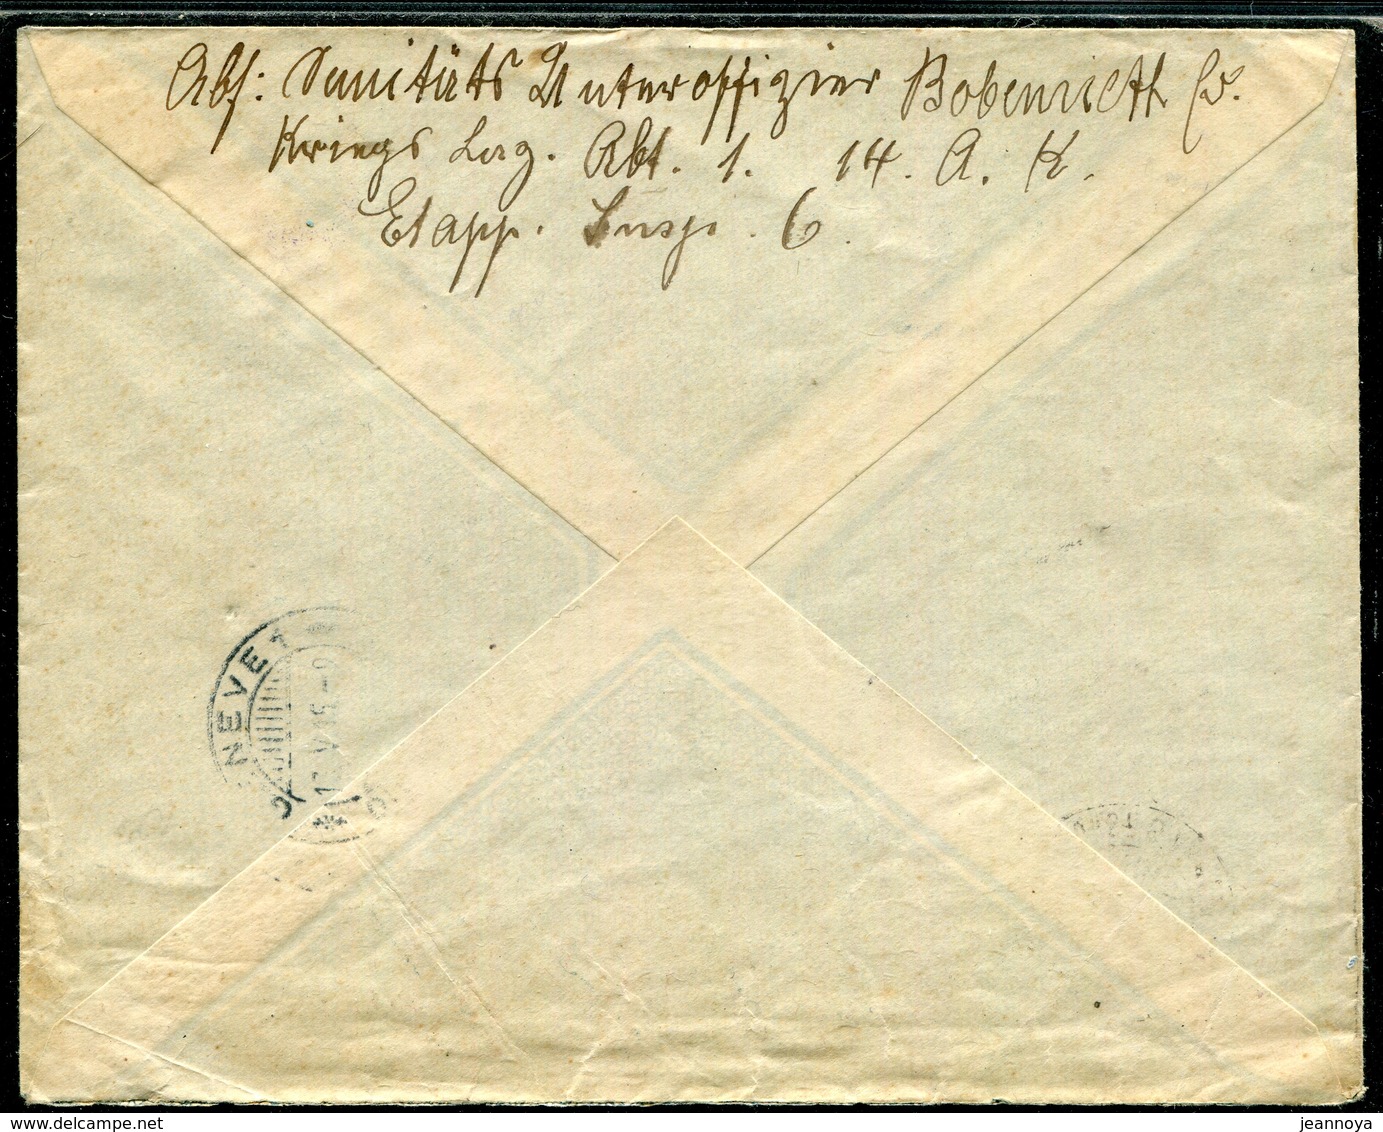 Abs: Sanitäts Unteroffizier Bobenrieth
Kriegs Laz. Abt. 1. 14. A. K.
Etapp. Insp. 6.
NEVE
jeannoya
delcampe.net